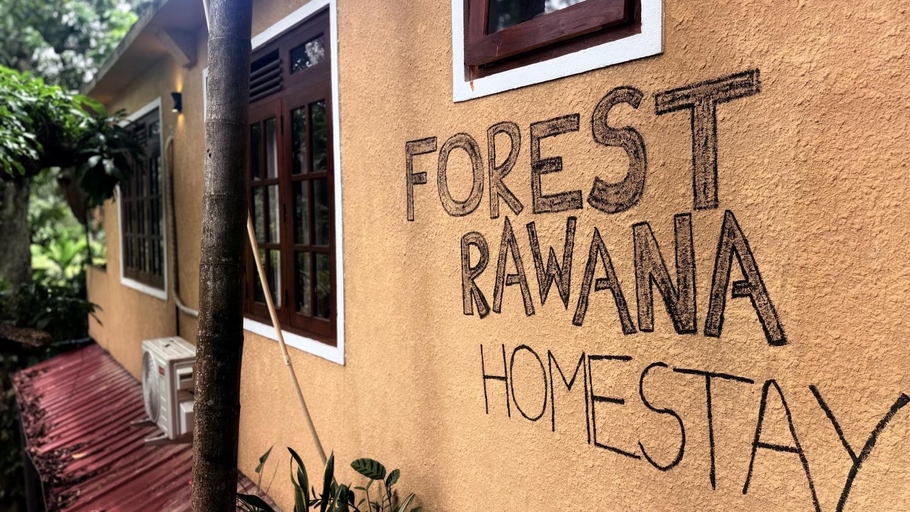 FOREST
RAWANA
HOMESTAY